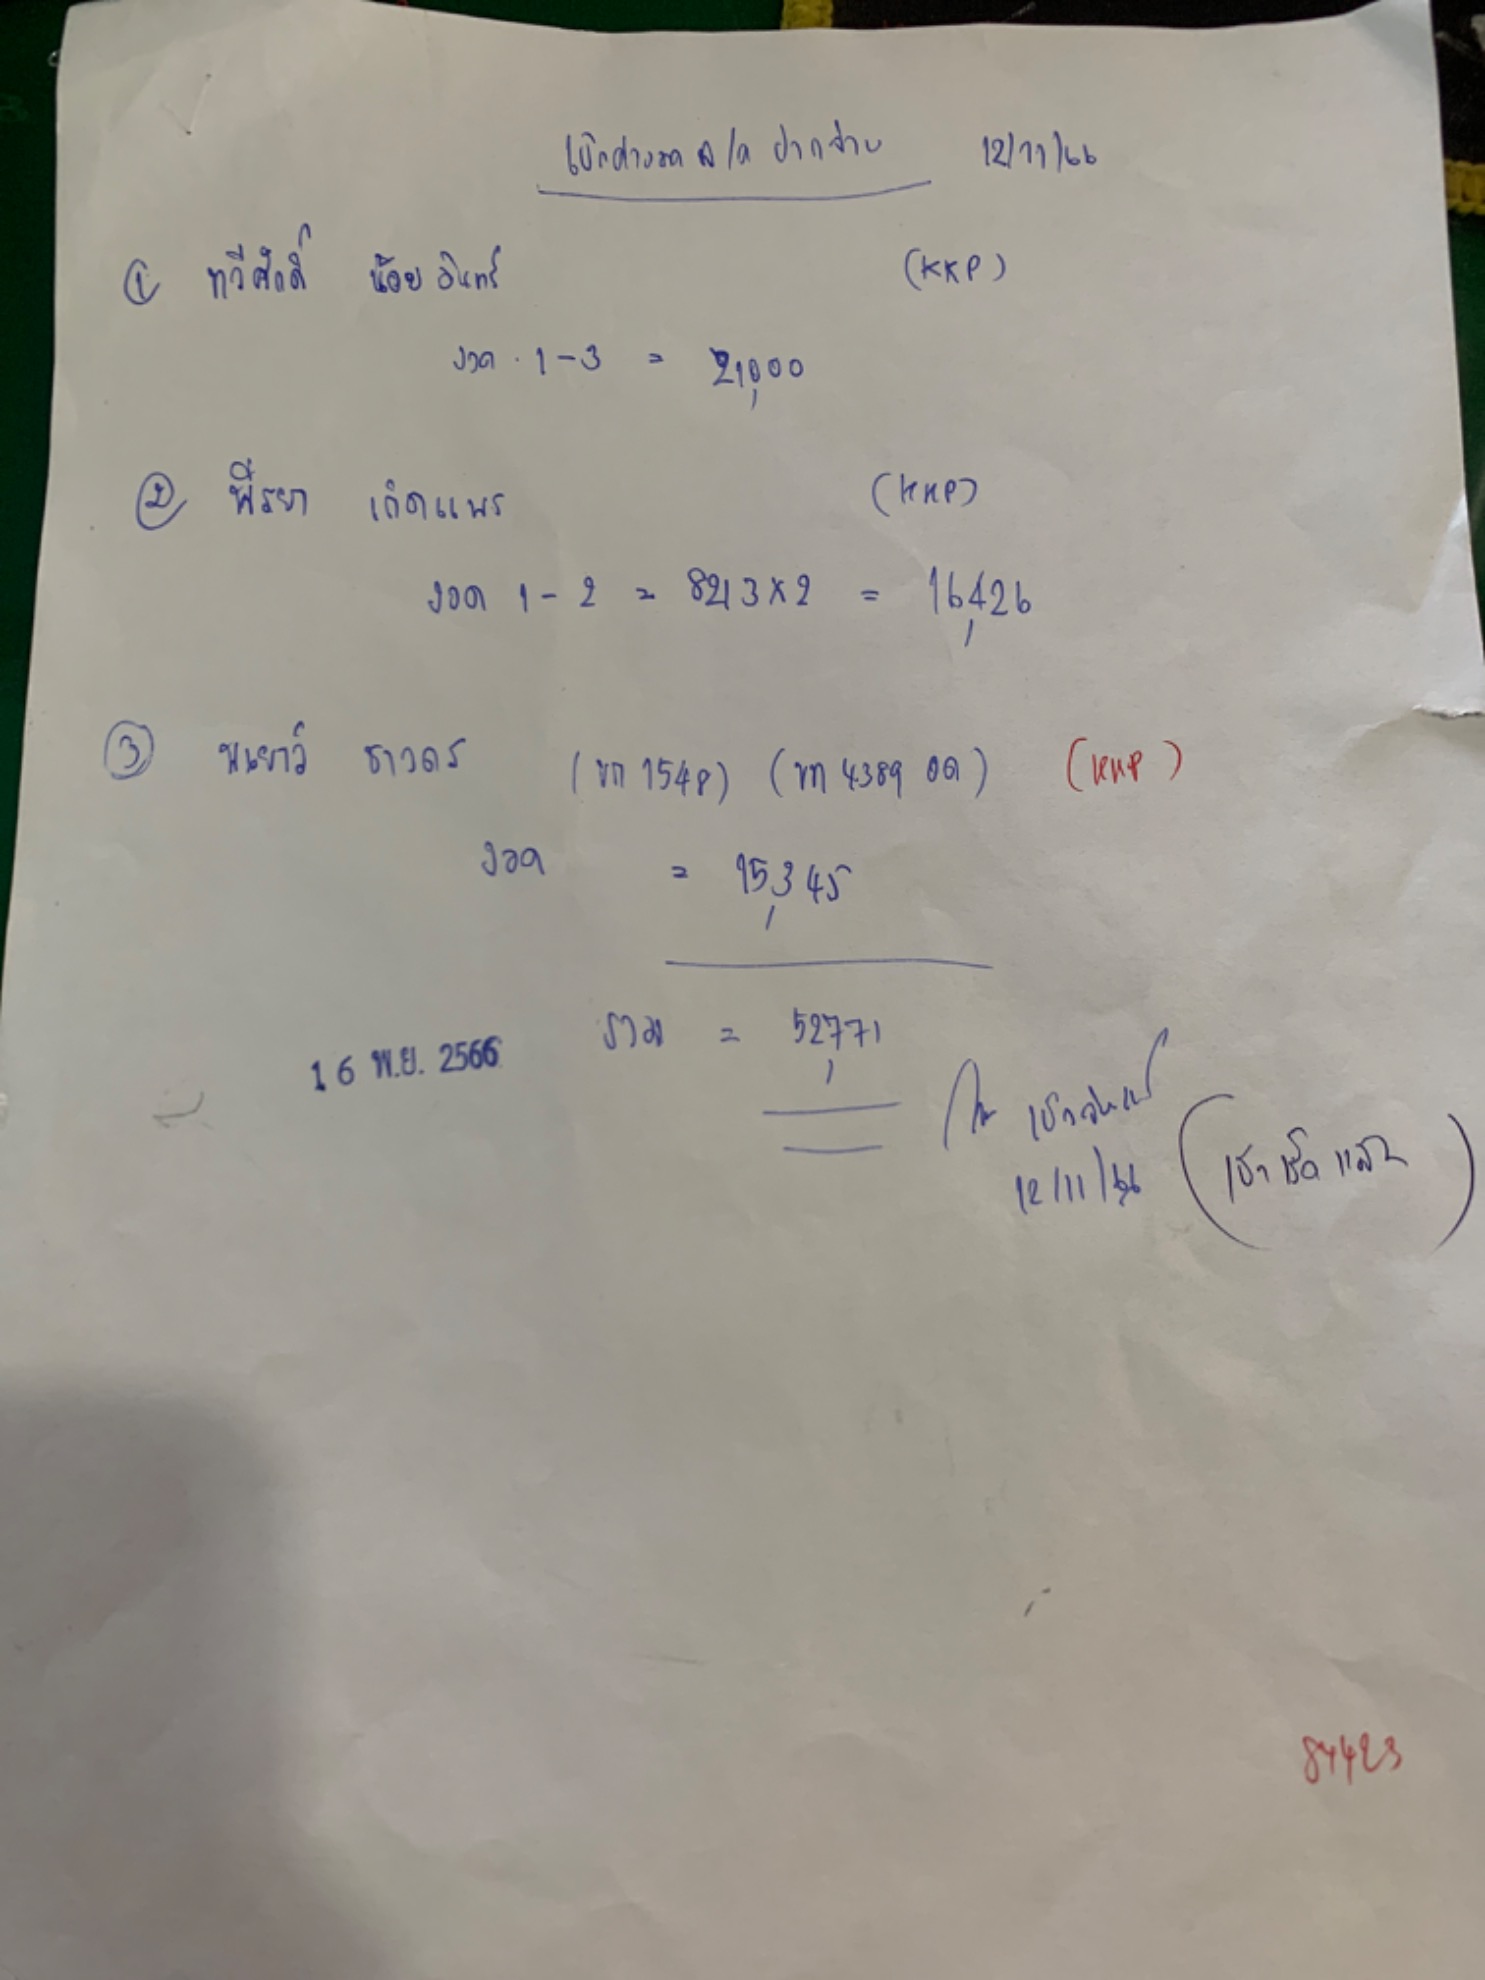 เบิกค่างวด ล/ค ปากจ่าย 12/11/66
① ทวีศักดิ์ น้อยอินทร์ (KKP)
งวด . 1-3 = 21,000
② พีรยา เกิดแพร (KKP)
งวด 1-2 = 8213x2 = 16,426
③ พเยาว์ ธาวดร (ขก 1548) (ขก 4389 อด) (KKP)
งวด = 15,345
รวม = 52,771
16 พ.ย. 2566
12/11/66
84423